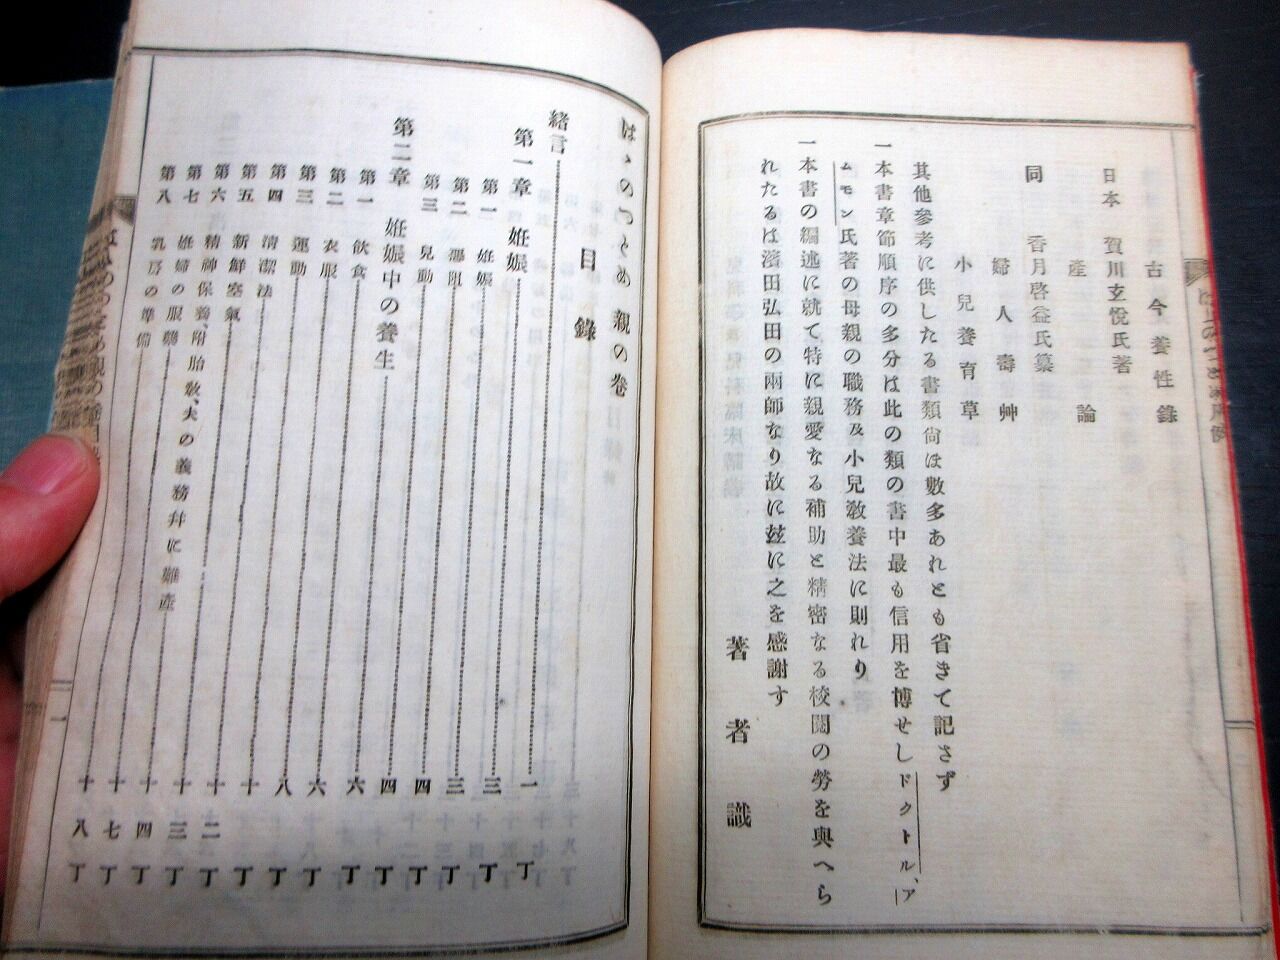 古今養性錄
日本 賀川玄悅氏著
產論
同 香月啓益氏纂
婦人壽艸
小兒養育草
其他參考に供したる書類尙ほ數多あれとも省きて記さず
一本書章節順序の多分は此の類の書中最も信用を博せしドクトル、ア
ムモン氏著の母親の職務及小兒敎養法に則れり
一本書の編述に就て特に親愛なる補助と精密なる校閱の勞を與へら
れたるは濱田弘田の兩師なり故に玆に之を感謝す
著者識
はゝのつとめ 親の卷
目錄
緖言 一丁
第一章 姙娠 三丁
第一 姙娠 三丁
第二 惡阻 四丁
第三 兒動 四丁
第二章 姙娠中の養生 六丁
第一 飮食 六丁
第二 衣服 八丁
第三 運動 十丁
第四 淸潔法 十二丁
第五 新鮮空氣 十三丁
第六 精神保養、附胎敎、夫の義務幷に難產 十四丁
第七 姙婦の服藥 十七丁
第八 乳房の準備 十八丁
一